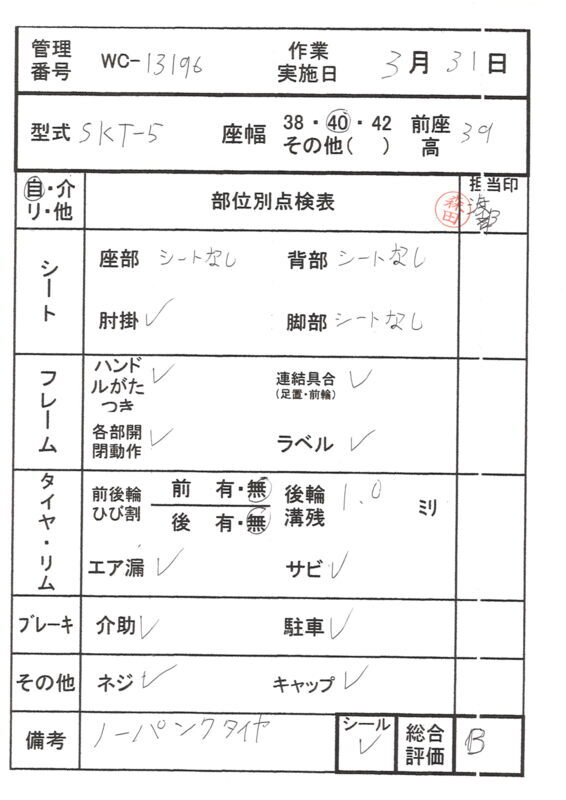 管理番号 WC-13196 作業実施日 3月31日
型式 SKT-5 座幅 38・40・42 その他( ) 前座高 39
自・介リ・他 部位別点検表 担当印
森田
シート 座部 シートなし 背部 シートなし
肘掛 ✓ 脚部 シートなし
フレーム ハンドルがたつき ✓ 連結具合(足置・前輪) ✓
各部開閉動作 ✓ ラベル ✓
タイヤ・リム 前後輪ひび割 前 有・無 後 有・無 後輪溝残 1.0 ミリ
エア漏 ✓ サビ ✓
ブレーキ 介助 ✓ 駐車 ✓
その他 ネジ ✓ キャップ ✓
備考 ノーパンクタイヤ シール ✓ 総合評価 B